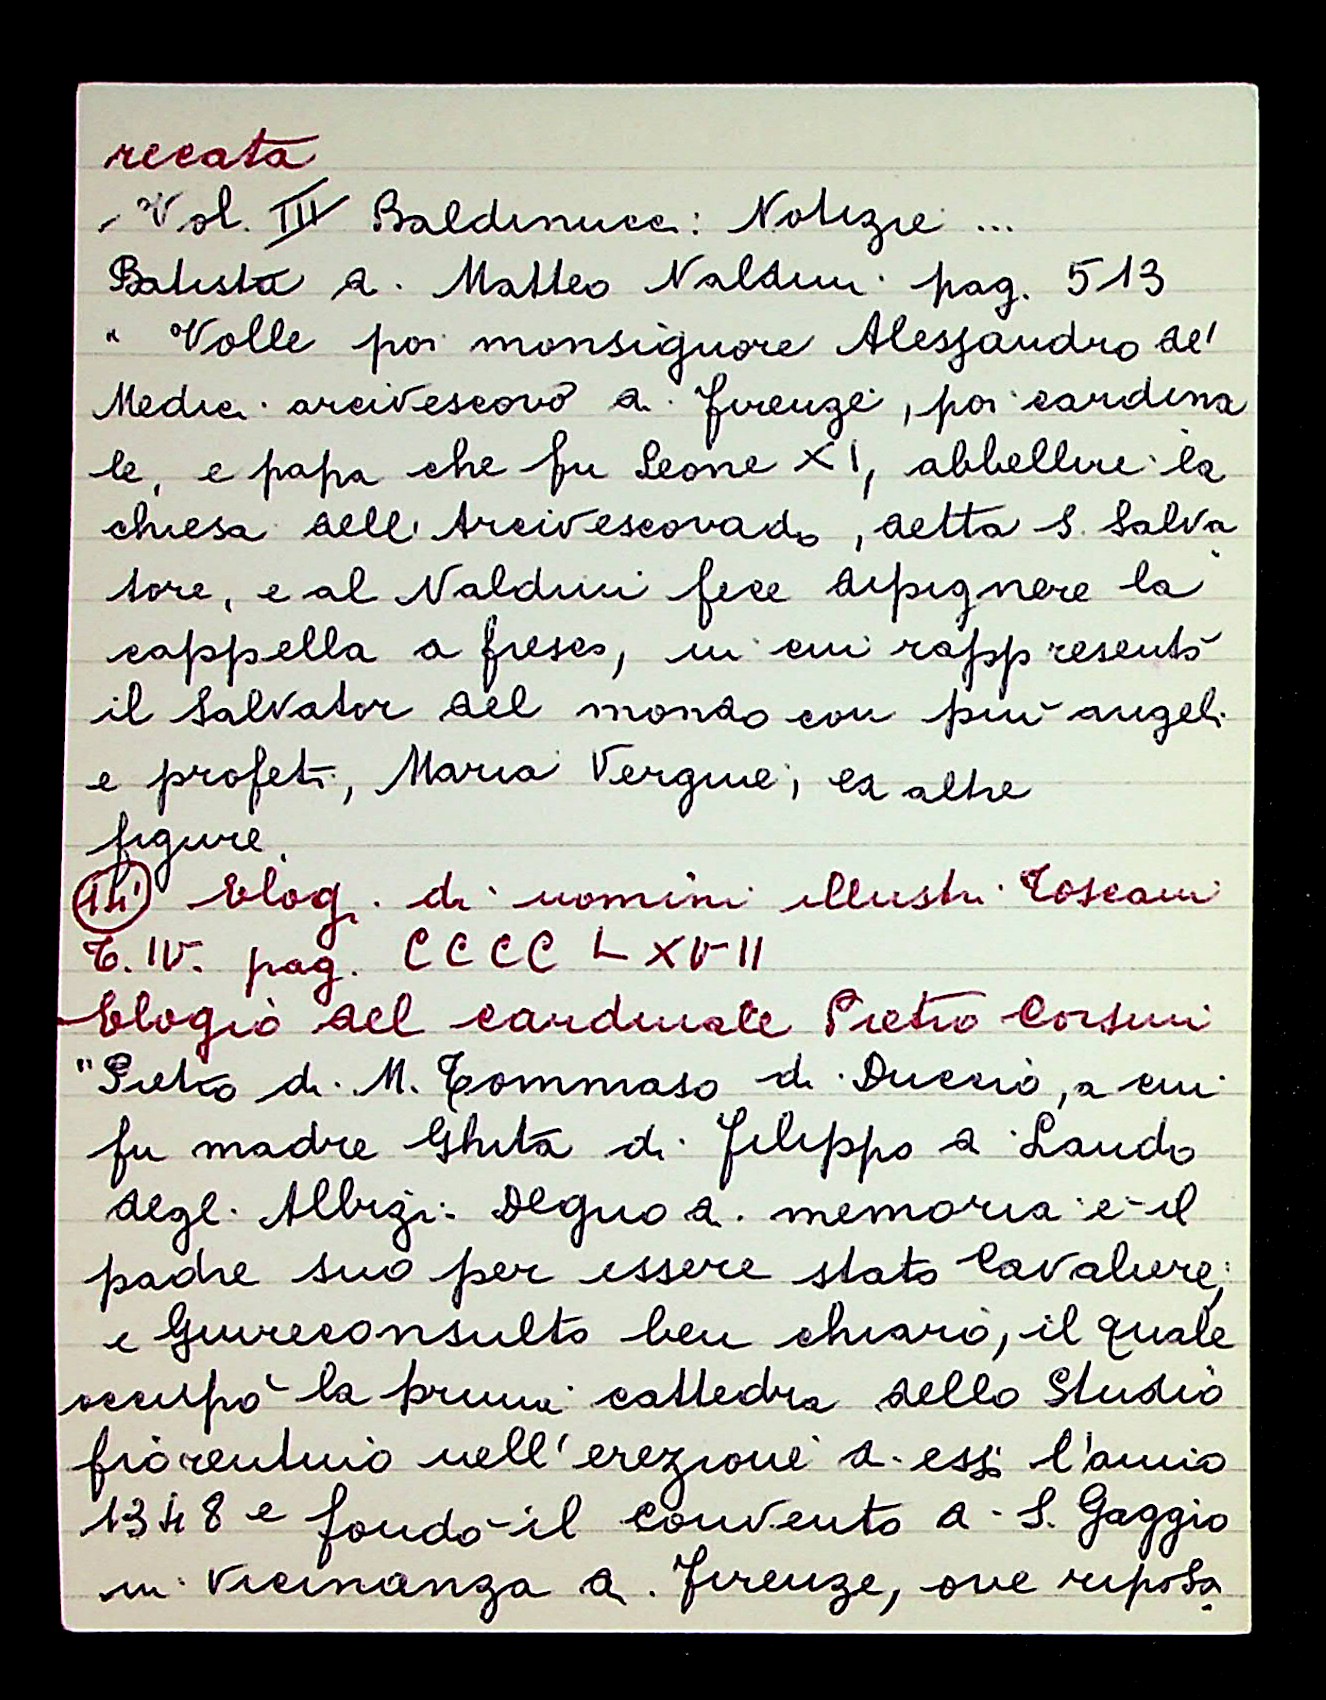 recata
Vol. III Baldinucci: Notizie ...
Batista di Matteo Naldini pag. 513
" Volle poi monsignore Alessandro de'
Medici arcivescovo di Firenze, poi cardina
le, e papa che fu Leone XI, abbellire la
chiesa dell'Arcivescovado, detta S. Salva
tore, e al Naldini fece dipignere la
cappella a fresco, in cui rappresentò
il Salvator del mondo con più angeli
e profeti, Maria Vergine, ed altre
figure.
14 Elog. di uomini illustri Toscani
T. IV. pag. CCCC LXVII
Elogio del cardinale Pietro Corsini
"Pietro di M. Tommaso di Duccio, a cui
fu madre Ghita di Filippo di Lando
degli Albizi. Degno di memoria è il
padre suo per essere stato Cavaliere,
e Giureconsulto ben chiaro, il quale
occupò la prima cattedra dello Studio
fiorentino nell'erezione di esso l'anno
1348 e fondò il convento di S. Gaggio
in vicinanza di Firenze, ove riposa